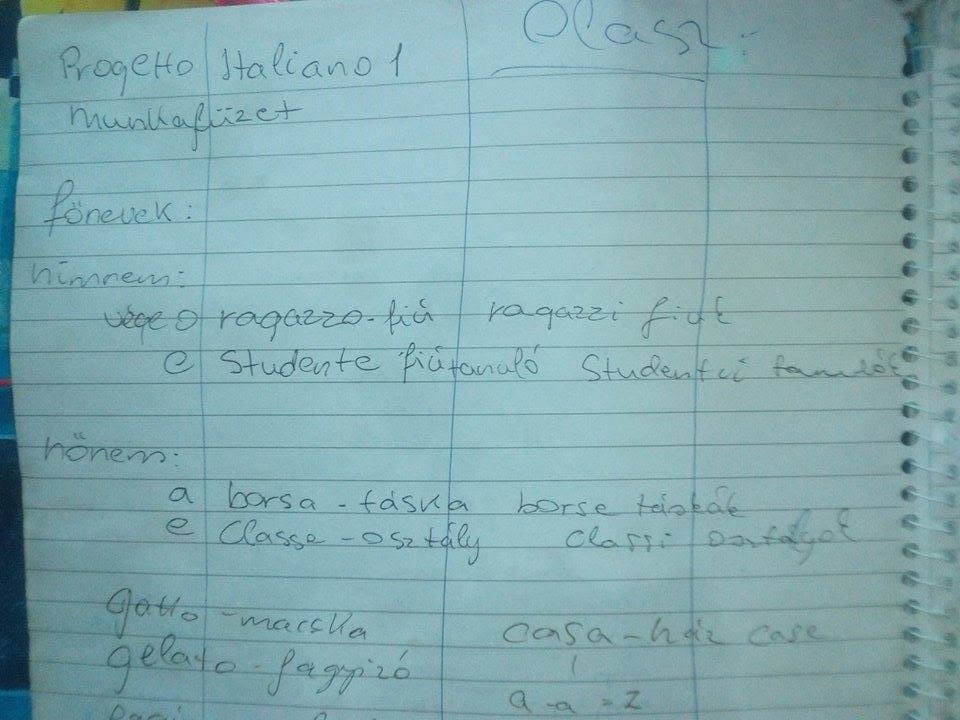 Olasz:
Progetto Italiano 1
munkafüzet
főnevek:
hímnem:
vége o ragazzo-fiú ragazzi fiuk
e Studente fiútanuló Studenti tanulók
nőnem:
a borsa - táska borse táskák
e Classe - osztály classi osztályok
gatto - macska casa - ház case
gelato - fagyizó
a - a = z